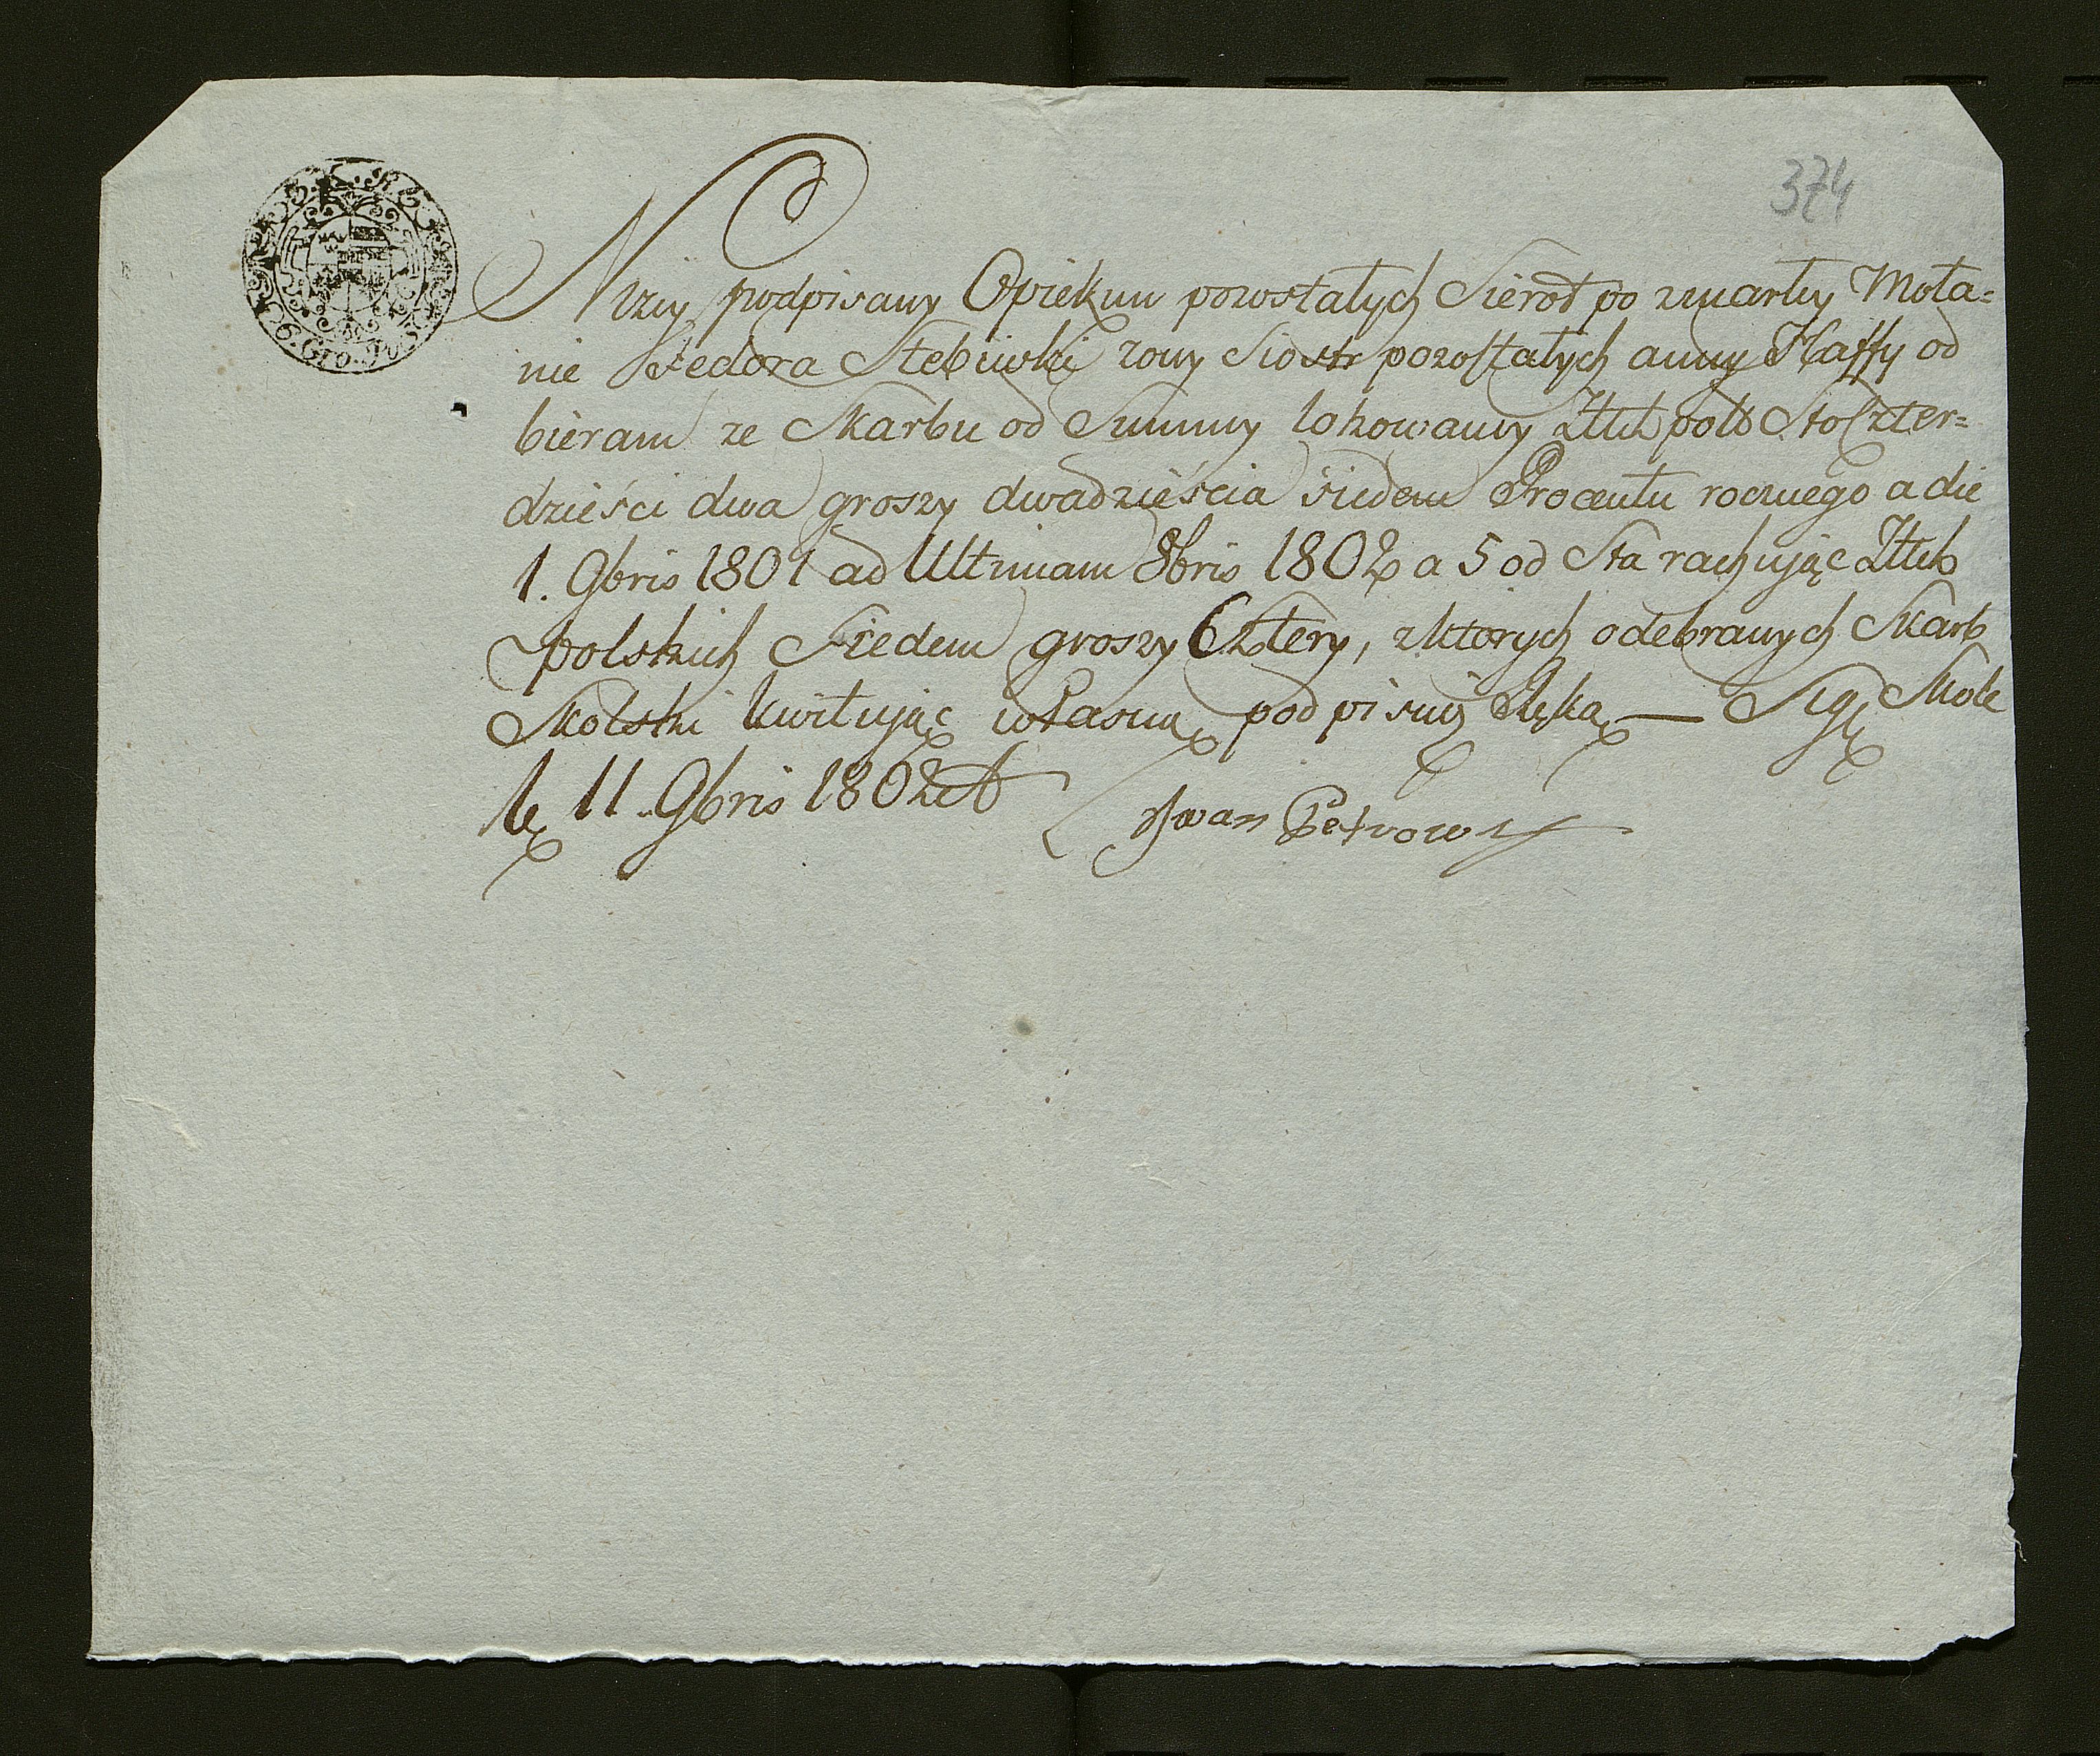 374
Niżey podpisany Opiekun pozostałych Sierot po zmarłey Mota=
nie Fedora Stebiwski zony Siostr pozostałych anny Haffy od
bieram ze Skarbu od Summy lokowany Złłch pols Sto Czter=
dzieści dwa groszy dwadzieścia siedem Procentu rocznego a die
1. 9bris 1801 ad Ultimam 8bris 1802 a 5 od Sta rachując Złłch
polskich Siedem groszy Cztery, z ktorych odebranych Skarb
Skolski kwitując własną podpisuię Ręką — Sig Skole
11. 9bris 1802
Iwan Petrow